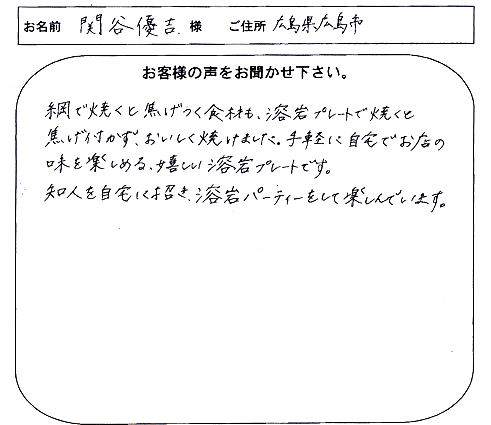 お名前 関谷優吉 様 ご住所 広島県広島市
お客様の声をお聞かせ下さい。
網で焼くと焦げつく食材も、溶岩プレートで焼くと
焦げ付かず、おいしく焼けました。手軽に自宅でお店の
味を楽しめる、嬉しい溶岩プレートです。
知人を自宅に招き、溶岩パーティーをして楽しんでいます。